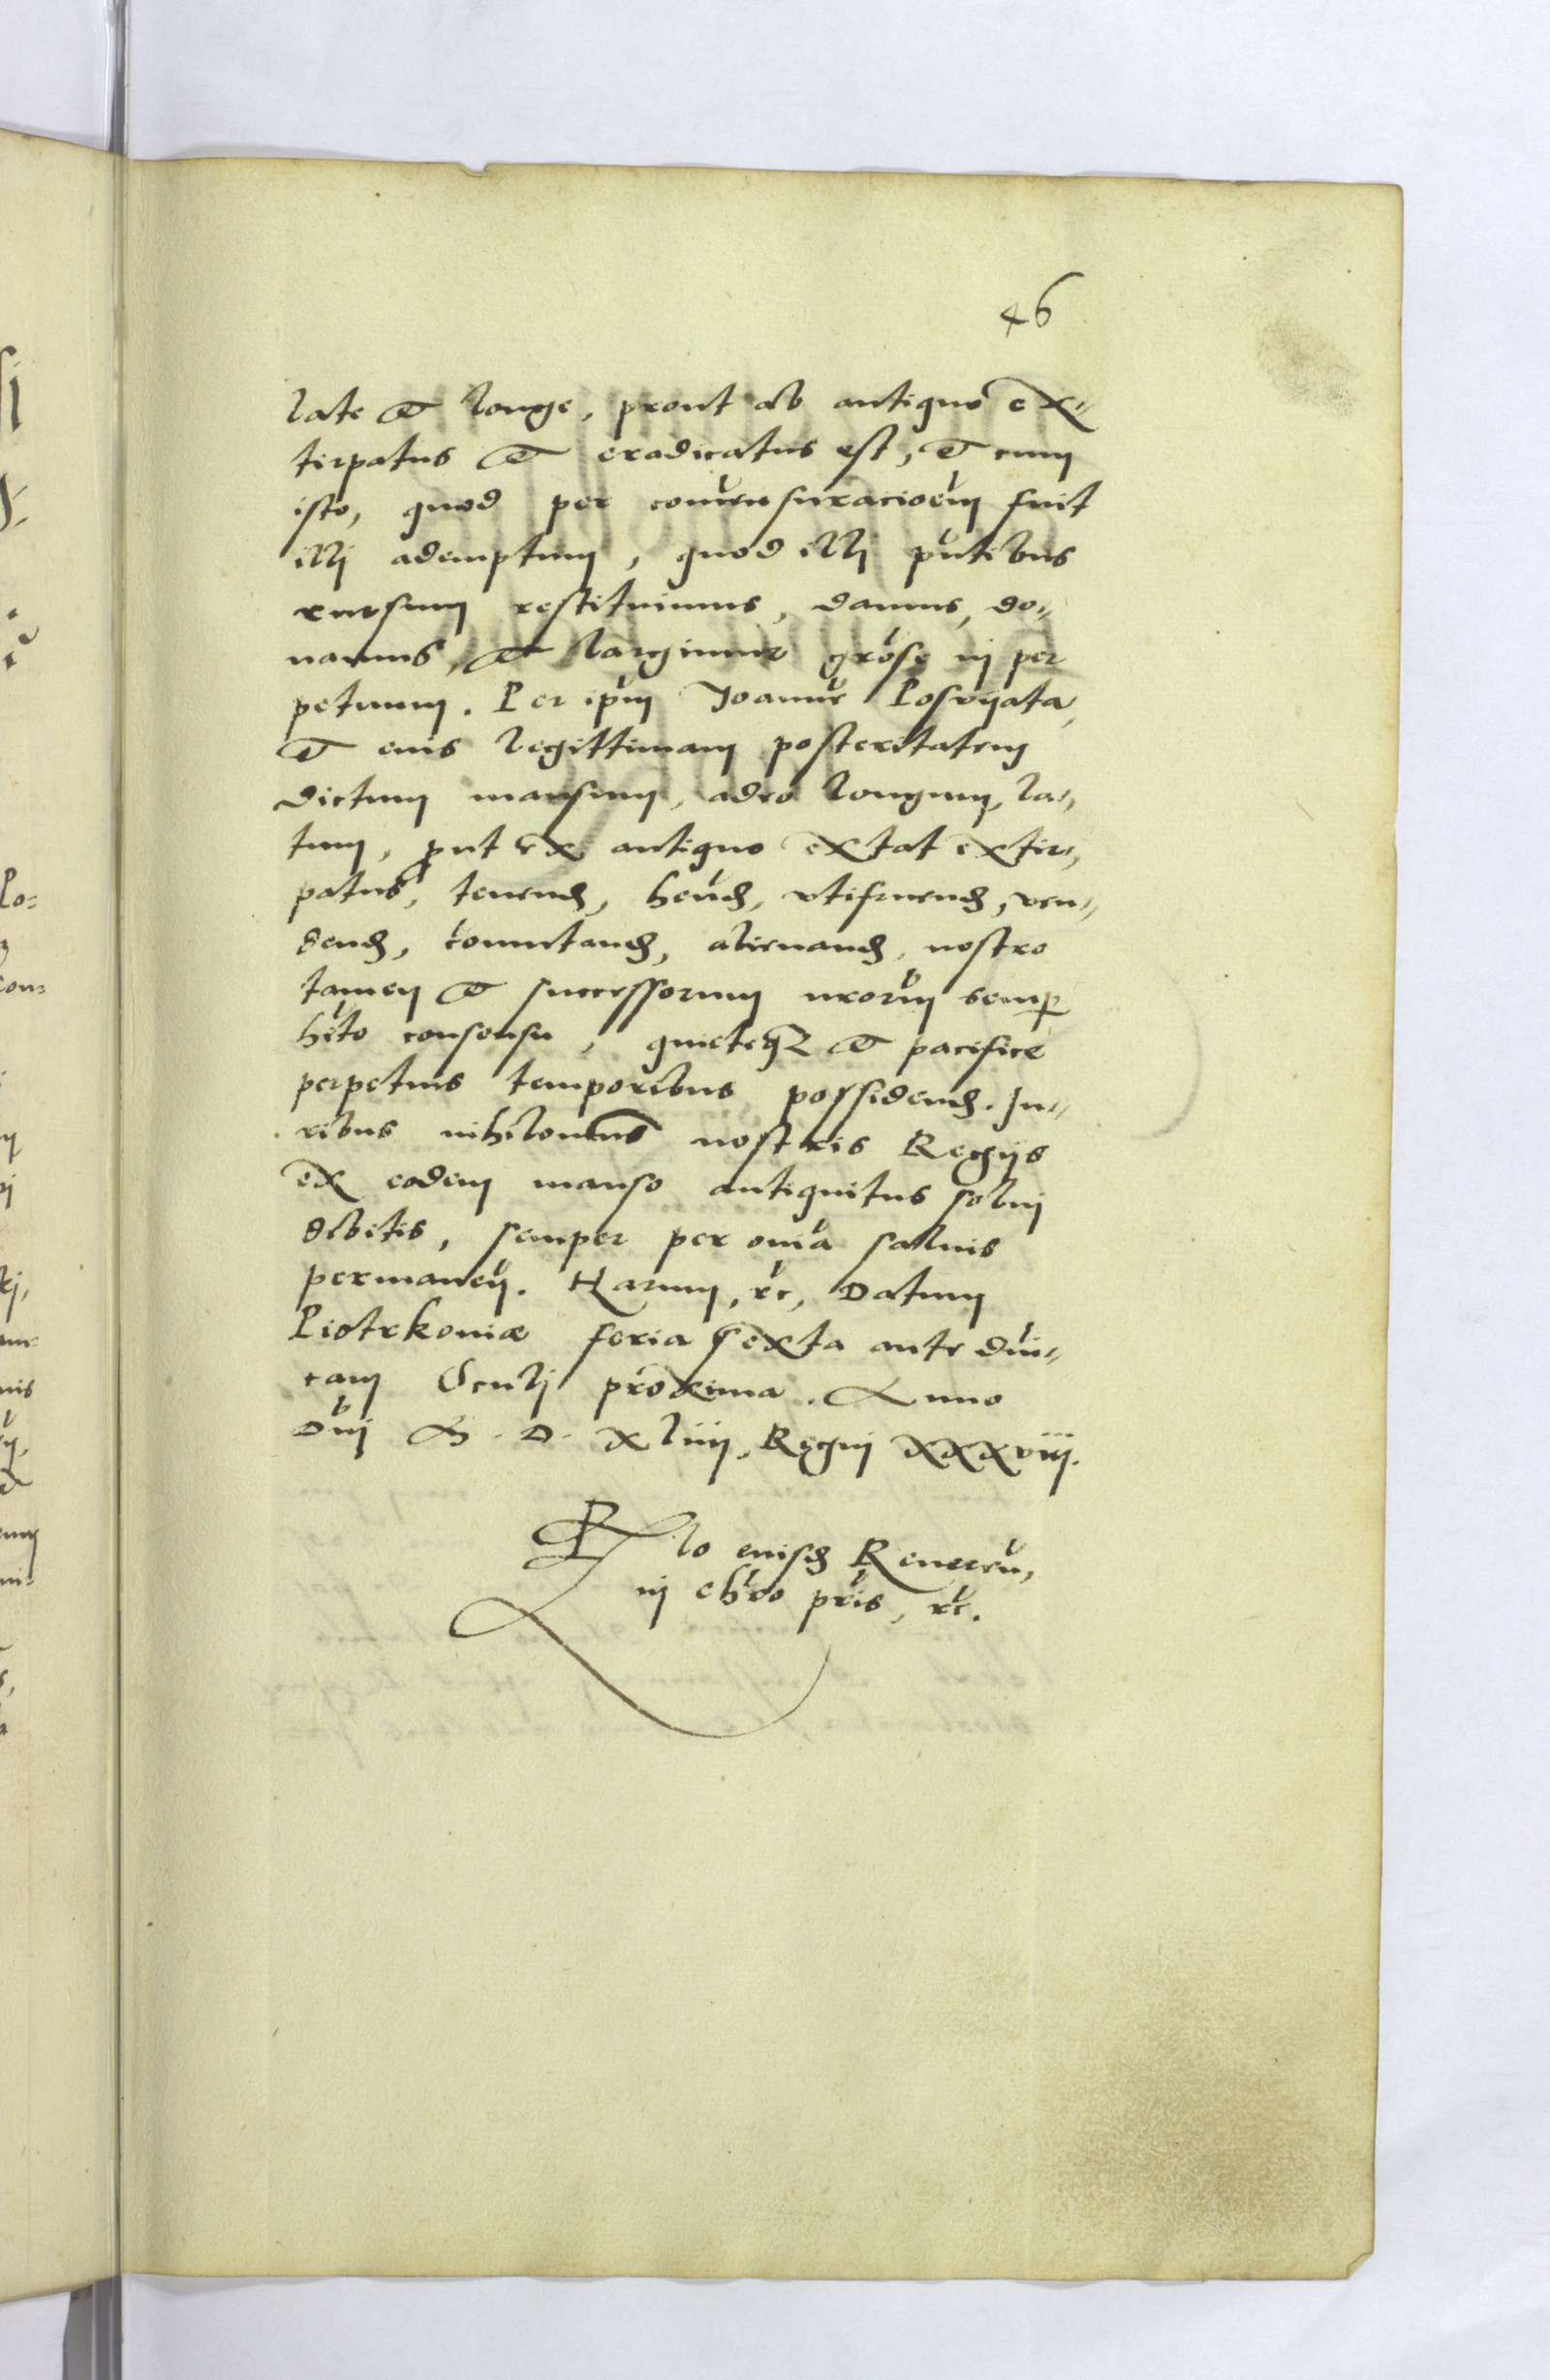 46
late et longe, prout ab antiquo ex⸗
tirpatus et eradicatus est, et cum
isto, quod per commensuracioem fuit
illi ademptum, quod illi pntibus
rursum restituimus, damus, do⸗
namus, et largimur grose in per
petuum. Per ipm Joannē Posvyata,
et eius legittimam posteritatem
dictum mansum, adeo longum, la⸗
tum, put ex antiquo extat extir⸗
patus, tenend, hend, utifruend, ven⸗
dend, comutand, alienand, nostro
tamen et successorum nrorum semp
hito consensu, quieteqz et pacifice
perpetuis temporibus possidend. Ju⸗
ribus nihilominus nostris Regijs
ex eodem manso antiquitus solui
debitis, semper per omia saluis
permanen. Harum, rc, Datum
Piotrkoniæ feria sexta ante dni⸗
cam Oculi proxima. Anno
Dni M. D. xliiij, Regni xxxviij.
Rlo eiusd Reueren,
in chro pris, rc.